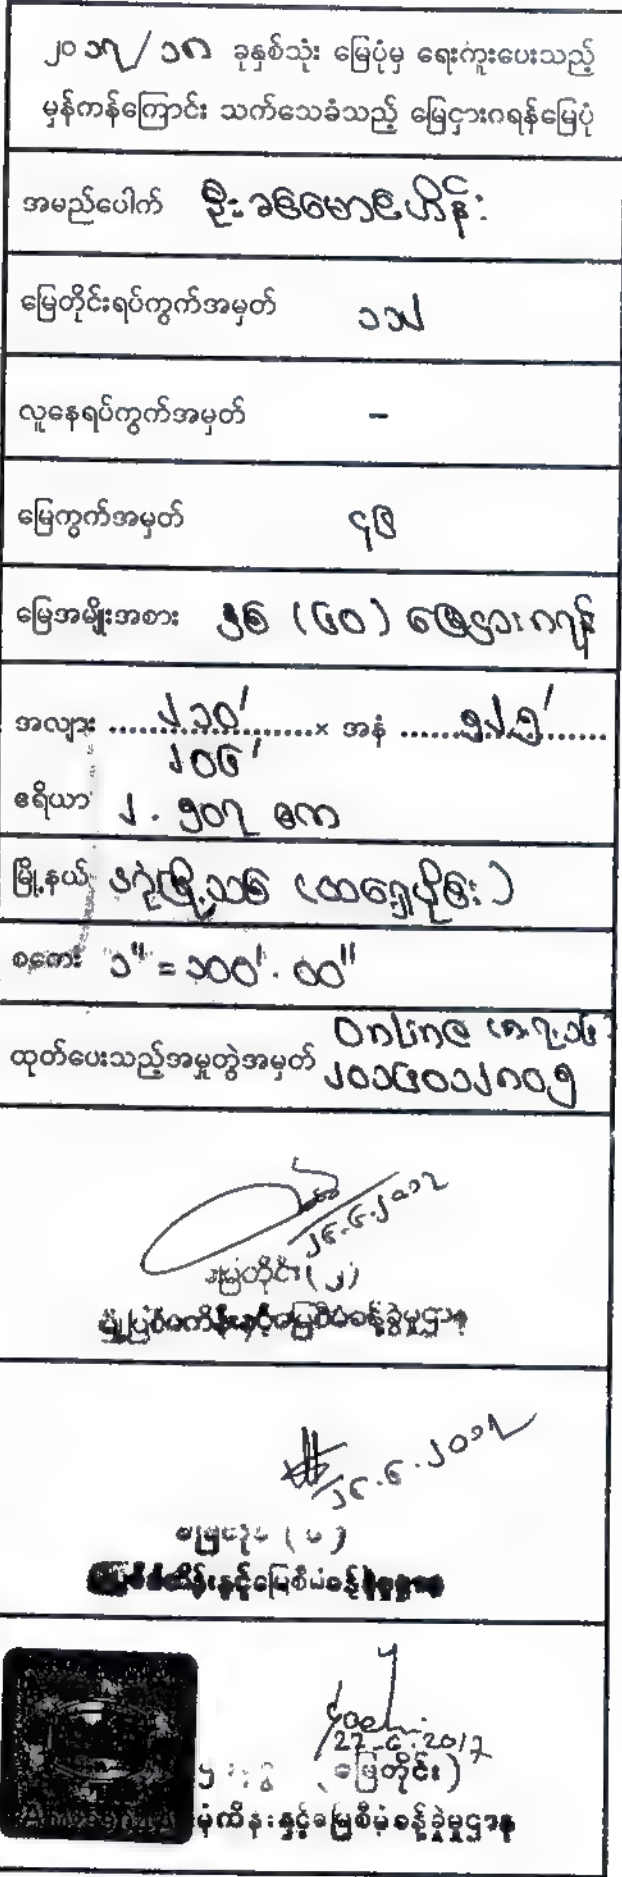 ၂၀၁၇/၁၈ ခုနှစ်သုံး မြေပုံမှ ရေးကူးပေးသည့်
မှန်ကန်ကြောင်း သက်သေခံသည့် မြေငှားဂရန်မြေပုံ
အမည်ပေါက် ဦးခင်မောင်ဟိန်း
မြေတိုင်းရပ်ကွက်အမှတ် ၁၁၂
လူနေရပ်ကွက်အမှတ် -
မြေကွက်အမှတ် ၄၆
မြေအမျိုးအစား နှစ် (၆၀) မြေငှားဂရန်
အလျား ၂၁၀' × အနံ ၅၂၅'
၂၀၆'
ဧရိယာ ၂.၅၀၇ ဧက
မြို့နယ် ဒဂုံမြို့သစ် (အရှေ့ပိုင်း)
စကေး ၁" = ၁၀၀'.၀၀"
Online
ထုတ်ပေးသည့်အမှုတွဲအမှတ် ၂၀၁၆၀၁၂၈၀၅
၂၆.၆.၂၀၁၇
မြေတိုင်း(၂)
မြို့ပြစီမံကိန်းနှင့်မြေစီမံခန့်ခွဲမှုဌာန
၂၆.၆.၂၀၁၇
စီမံကိန်းနှင့်မြေစီမံခန့်ခွဲမှုဌာန
27.6.2017
(မြေတိုင်း)
စီမံကိန်းနှင့်မြေစီမံခန့်ခွဲမှုဌာန